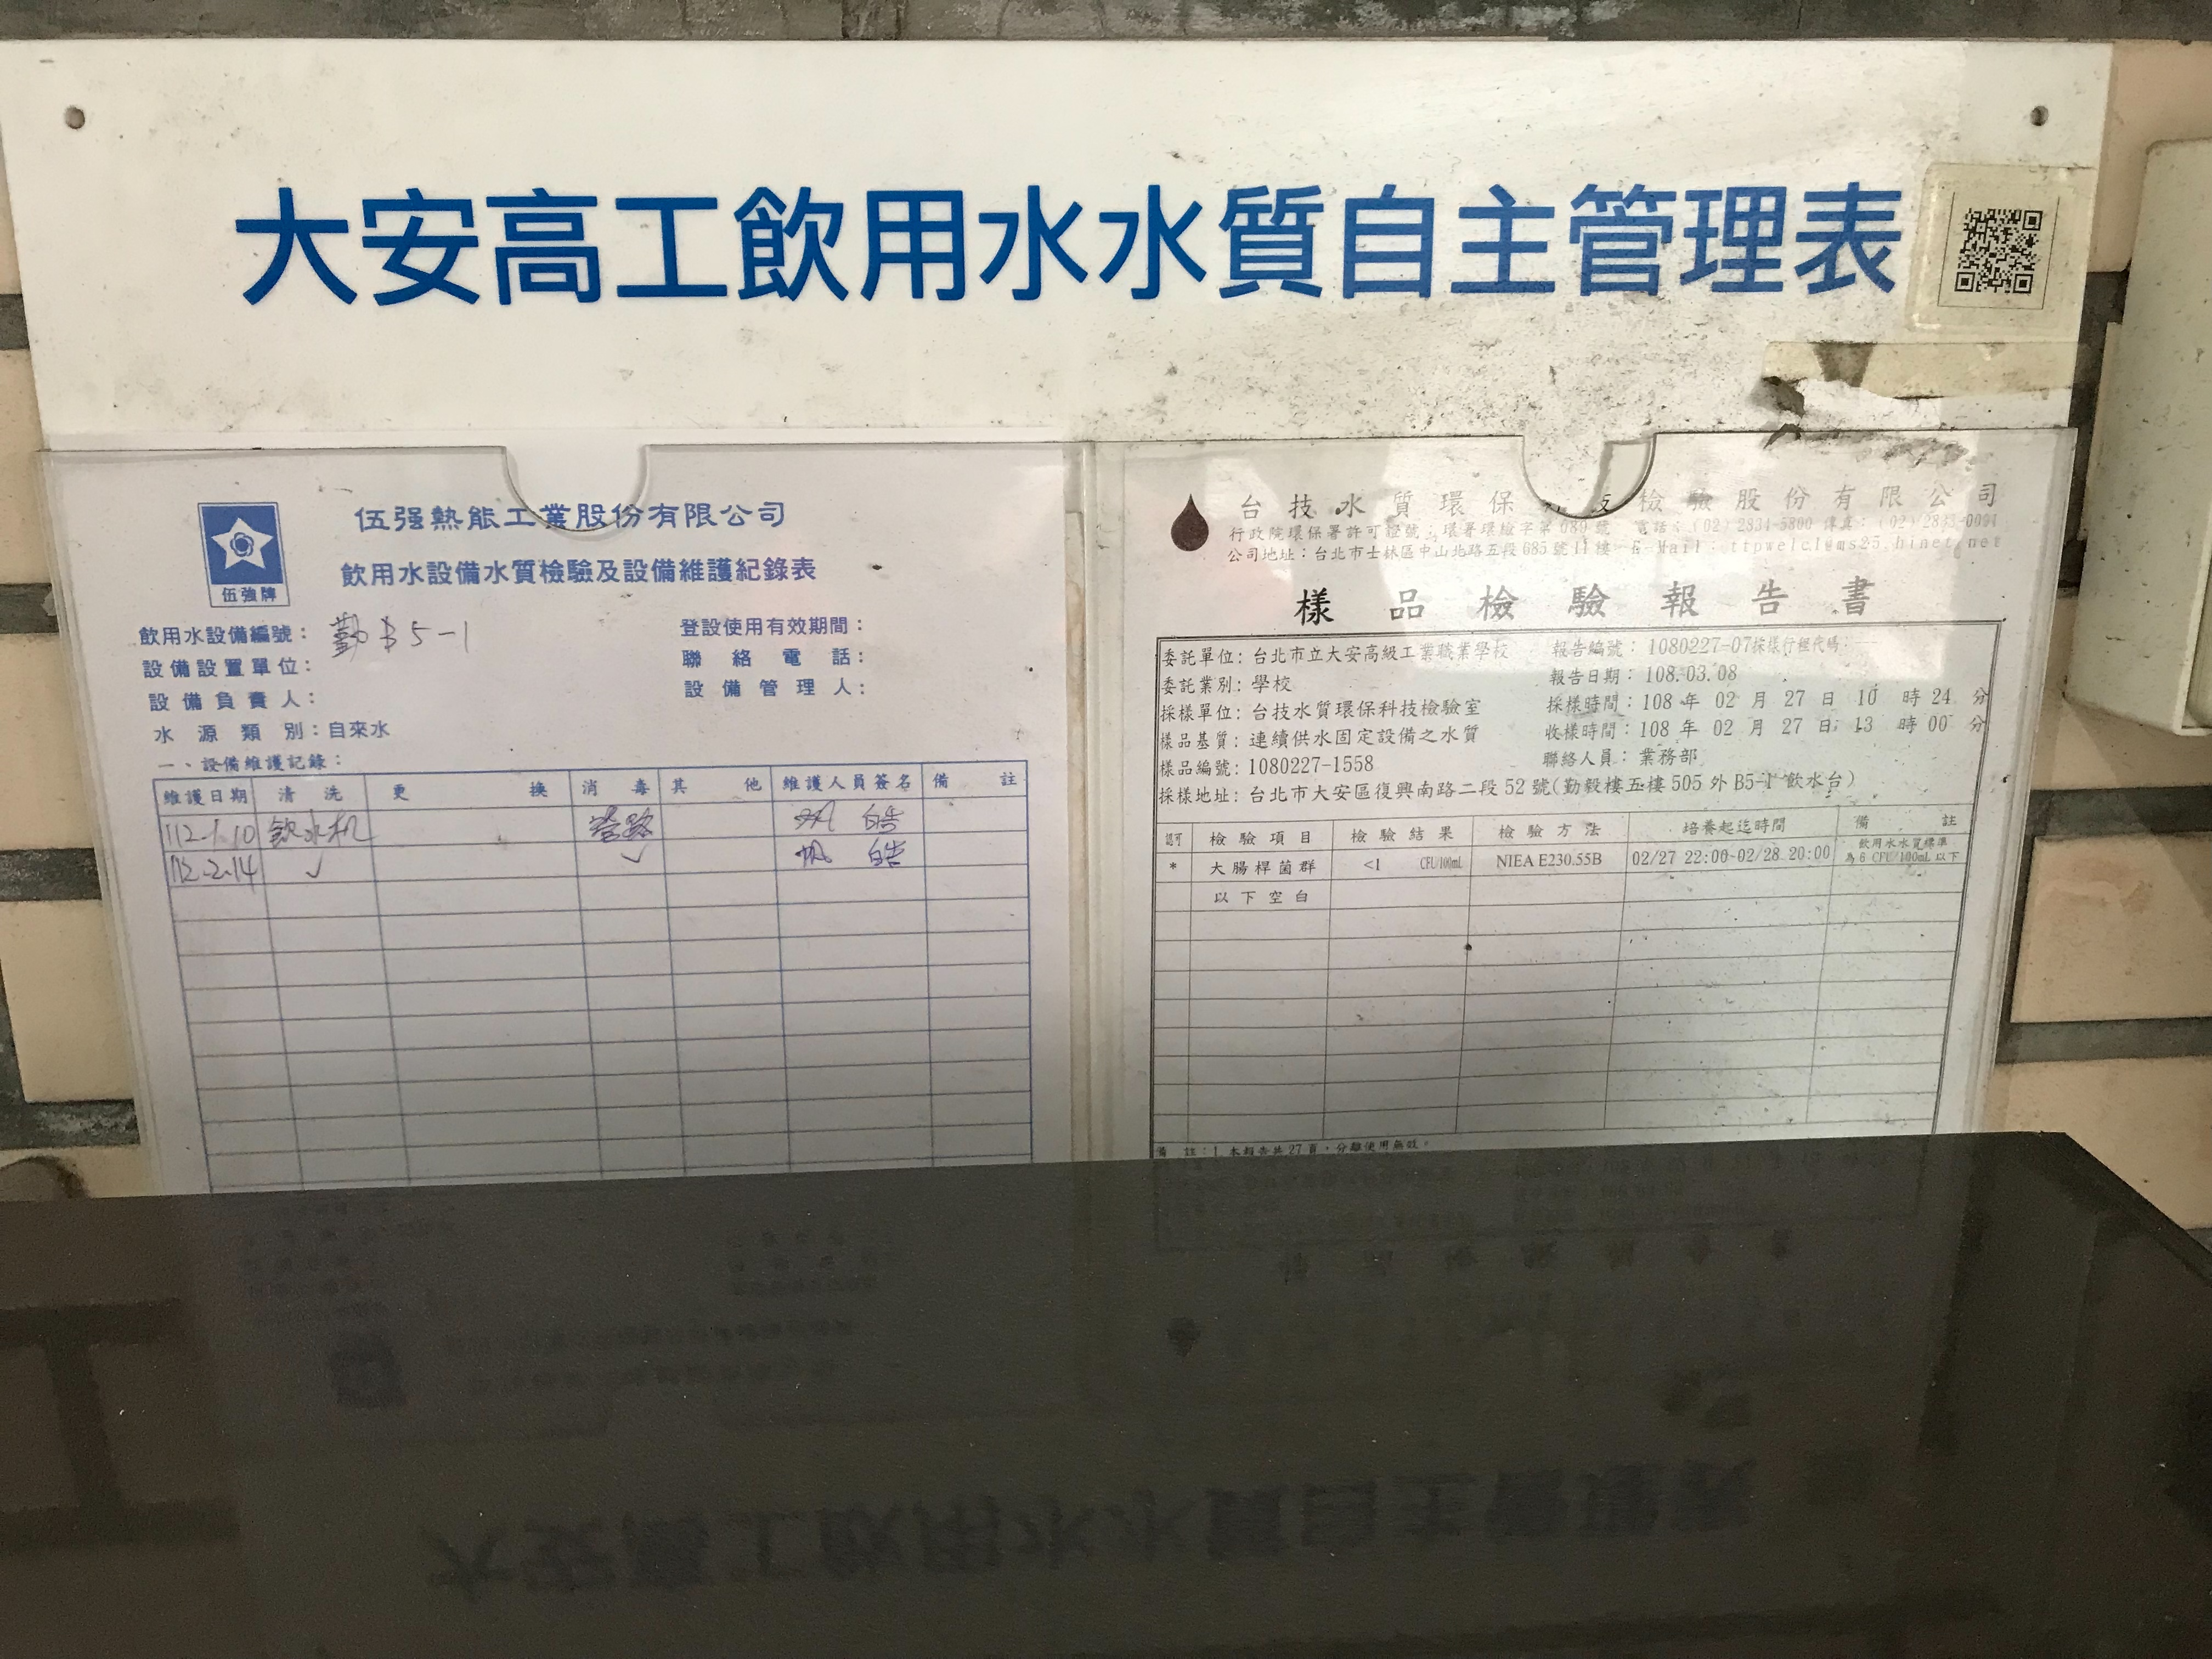 大安高工飲用水水質自主管理表
伍强熱能工業股份有限公司
飲用水設備水質檢驗及設備維護紀錄表
伍強牌
飲用水設備編號：勤B5-1
登設使用有效期間：
設備設置單位：
聯絡電話：
設備負責人：
設備管理人：
水源類別：自來水
一、設備維護記錄：
維護日期 清洗 更換 消毒 其他 維護人員簽名 備註
112.1.10 飲水机 管路 帆 皓
112.2.14 ✓ ✓ 帆 皓
台技水質環保 檢驗股份有限公司
行政院環保署許可證號：環署環檢字第089號 電話：(02)2834-5800 傳真：(02)2833-0094
公司地址：台北市士林區中山北路五段685號11樓 E-Mail：ttpwelcl@ms25.hinet.net
樣品檢驗報告書
委託單位：台北市立大安高級工業職業學校 報告編號：1080227-07採樣行程代碼：---
委託業別：學校 報告日期：108.03.08
採樣單位：台技水質環保科技檢驗室 採樣時間：108 年 02 月 27 日 10 時 24 分
樣品基質：連續供水固定設備之水質 收樣時間：108 年 02 月 27 日 13 時 00 分
樣品編號：1080227-1558 聯絡人員：業務部
採樣地址：台北市大安區復興南路二段52號(勤毅樓五樓505外B5-1飲水台)
認可 檢驗項目 檢驗結果 檢驗方法 培養起迄時間 備註
* 大腸桿菌群 <1 CFU/100mL NIEA E230.55B 02/27 22:00~02/28 20:00 飲用水水質標準
為6 CFU/100mL以下
以下空白
備註：1.本報告共27頁，分離使用無效。